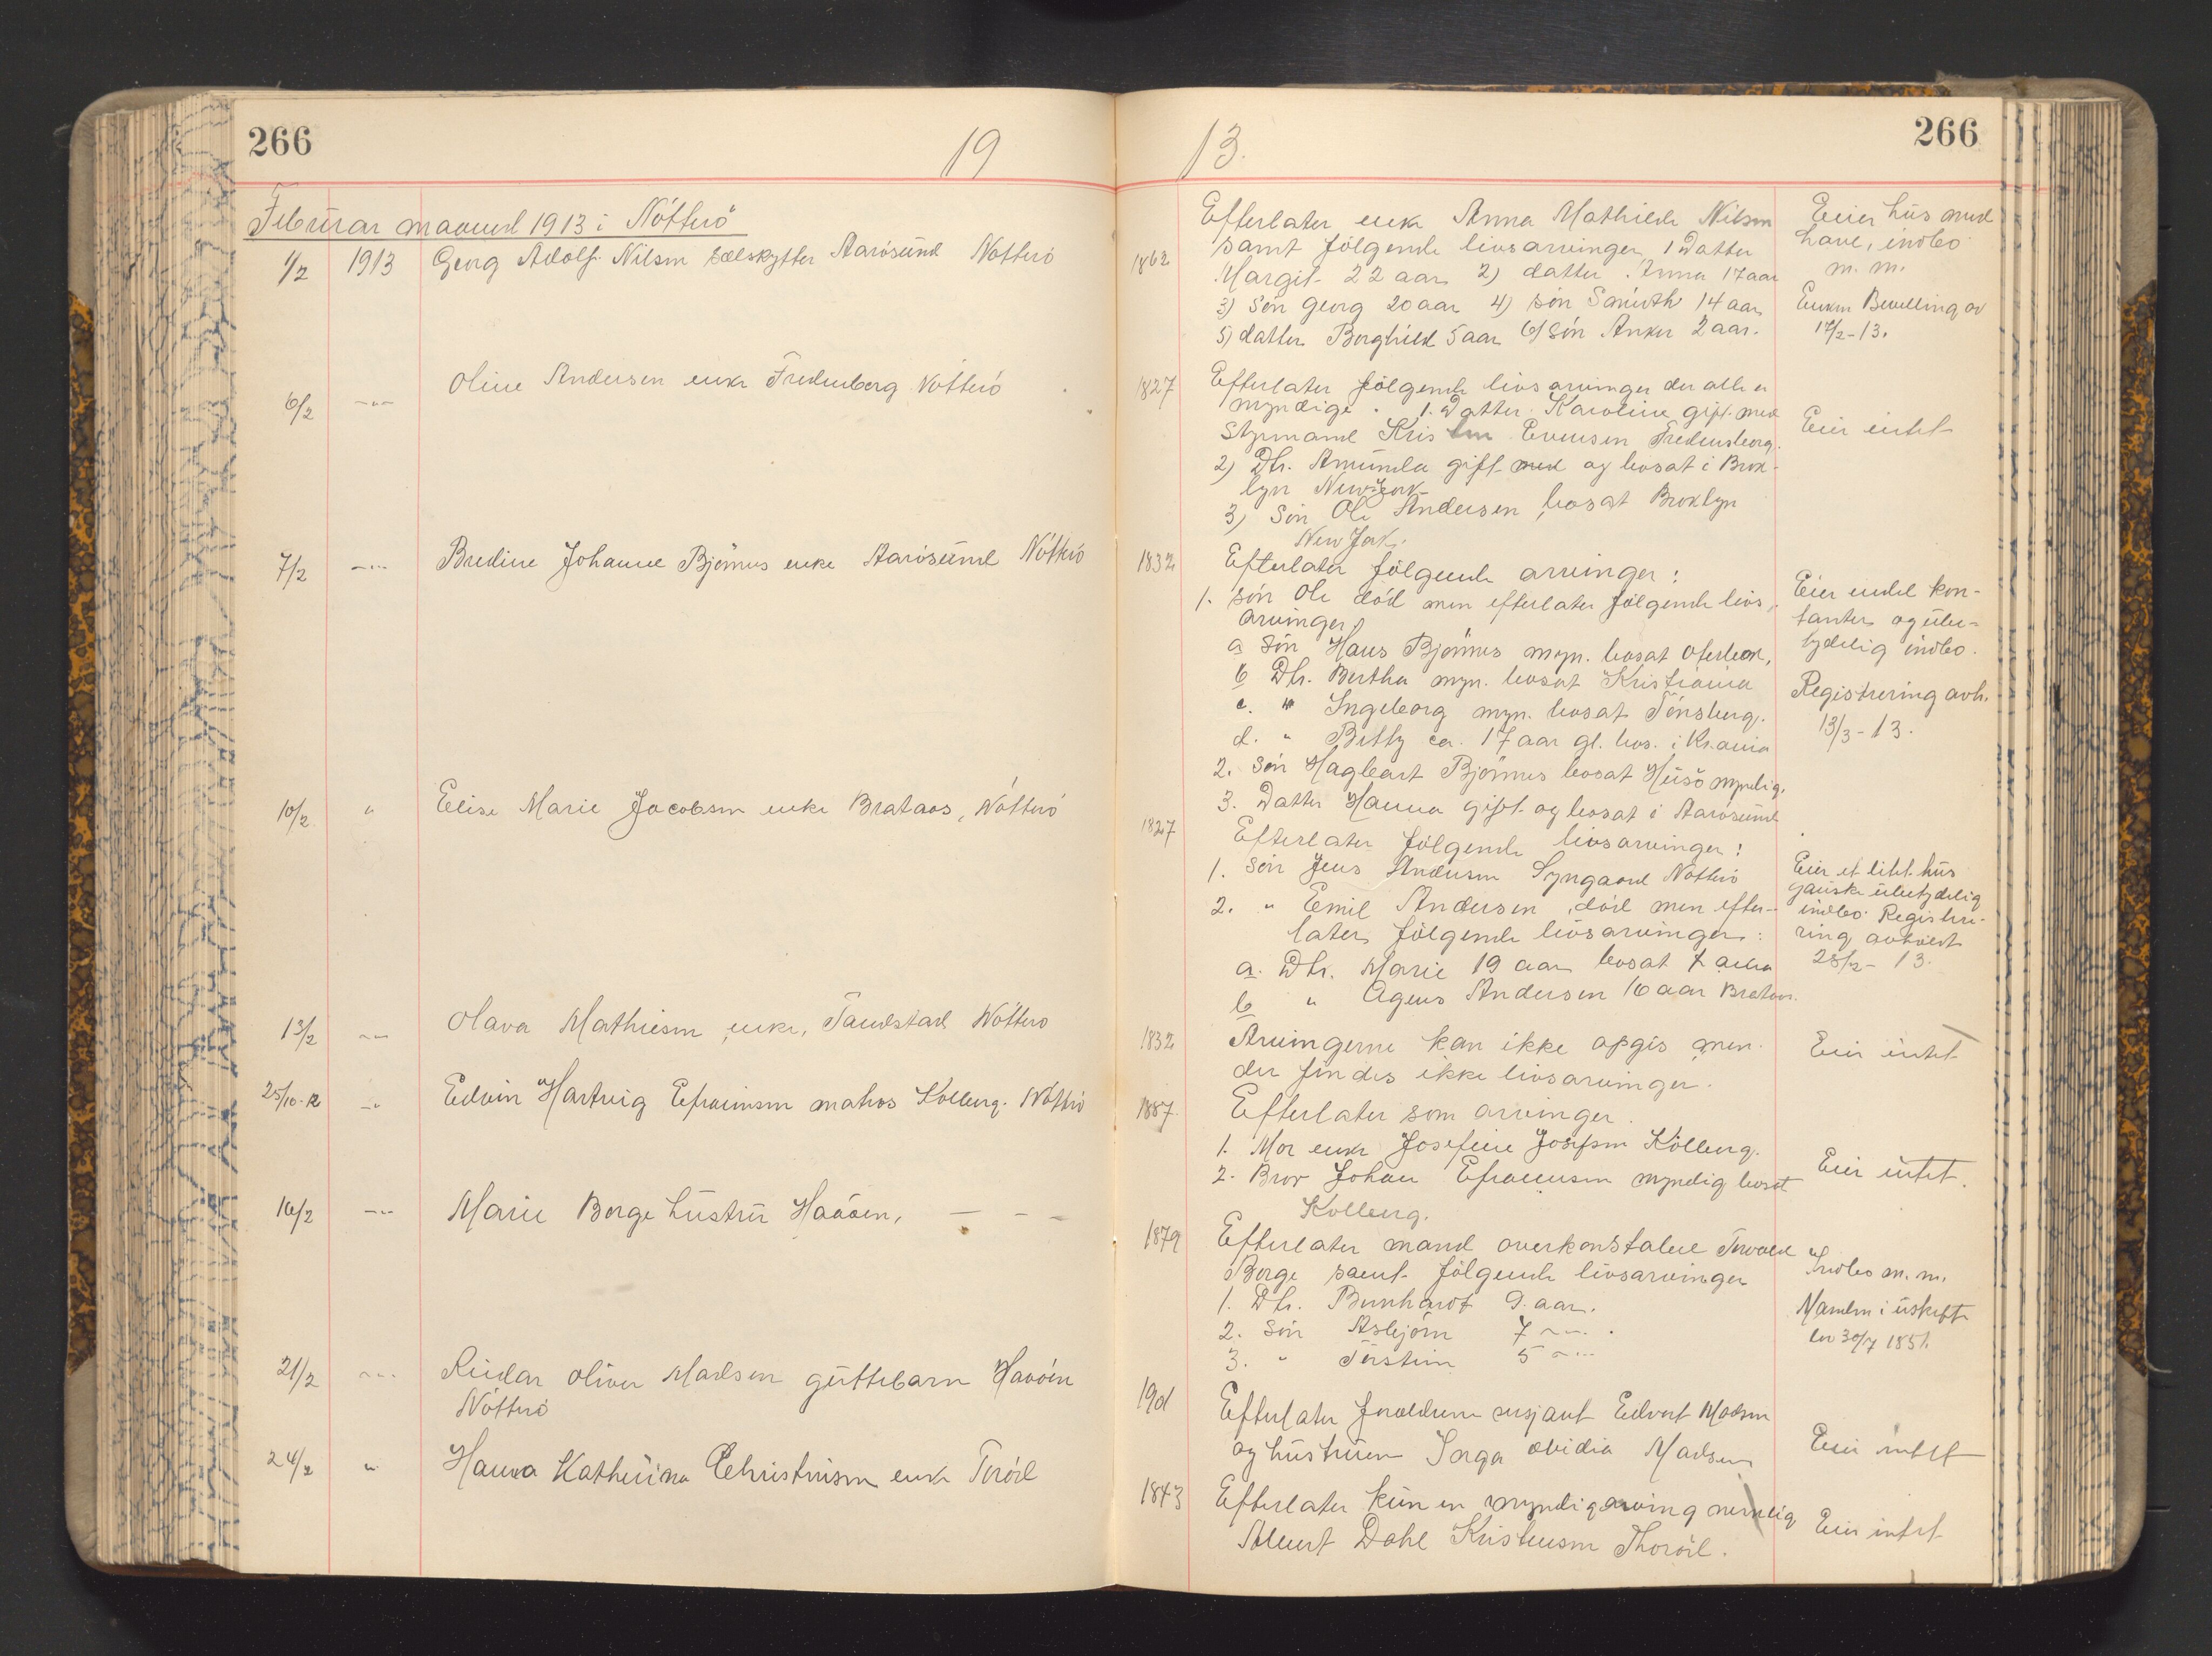 266
19
13.
266
Februar maaned 1913 i Nötterö
1/2 1913 Georg Adolf Nilsen sælskytter Aarösund Nötterö
1862 Efterlater enke Anna Mathilde Nilsen
samt fölgende livsarvinger, 1 Datter
Margit 22 aar 2) datter Anna 17 aar
3) Sön Georg 20 aar 4) sön 14 aar
5) datter Borghild 5 aar 6) Sön Anker 2 aar.
Eeier hus med
have, indbo
m. m.
Enken Bevilling av
17/2-13.
6/2 Oline Andersen enke Fredensborg Nötterö
1827 Efterlater fölgende livsarvinger der alle er
myndige. 1. Datter Karoline gift med
Styrmand Kris Evensen Fredensborg.
2) Dtr. Amunda gift med og bosat i Brok-
lyn New York
3) Sön Ole Andersen, bosat Broklyn
New Jork.
Eier intet
7/2 Bredine Johanne Bjönnes enke Aarösund Nötterö
1832 Efterlater fölgende arvinger:
1. sön Ole död men efterlater fölgende livs
arvinger,
a sön Hans Bjönnes myn. bosat
b Dtr. Bertha myn. bosat Kristiania
c. " Ingeborg myn. bosat Tönsberg.
d. " Betty ca. 17 aar gl. bos. i Kr.ania
2. Sön Hagbart Bjönnes bosat Husö myndig.
3. Datter Hanna gift og bosat i Aarösund
Eier endel kon-
tanter og ube-
tydelig indbo.
Registrering avh.
13/3-13.
10/2 " Elise Marie Jacobsen enke Brataas, Nötterö
1827 Efterlater fölgende livsarvinger:
1. Sön Jens Andersen Nötterö
2. " Emil Andersen, död men efter-
later fölgende livsarvinger:
a. Dtr. Marie 19 aar bosat
b " Agnes Andersen 16 aar Brataas.
Eier et litet hus
ganske ubetydelig
indbo Registre-
ring avholdt
28/2-13.
13/2 Olava Mathisen enke, Tandstad Nötterö
1832 Arvingerne kan ikke opgis men
der findes ikke livsarvinger.
Eier intet
25/10-12 Edvin Hartvig Efraimsen matros Kolberg. Nötterö
1887. Efterlater som arvinger.
1. Mor enke Josefine Josefsen Kölberg.
2. Bror Johan Efraimsen myndig bosat
Kolberg.
Eier intet.
16/2 Marie Borge hustru Haaöen, — - -
1879 Efterlater mand overkonstabel Torvald
Borge samt fölgende livsarvinger
1. Dtr. Bernhardt 9. aar.
2. Sön Asbjörn 7
3. " Torstein 5
Indbo m. m.
Manden i uskifte
lov 30/7 1851.
21/2 Reidar Oliver Madsen guttebarn Havöen
Nötterö
Efterlater foreldrene sersjant Edvart Madsen
og hustruen Inga Ovidia Madsen
Eier intet
24/2 " Hanna Kathrina Christensen enke Toröd
1843 Efterlater kun en myndig arving nemlig
Albert Dahl Kristensen Thoröd.
Eier intet